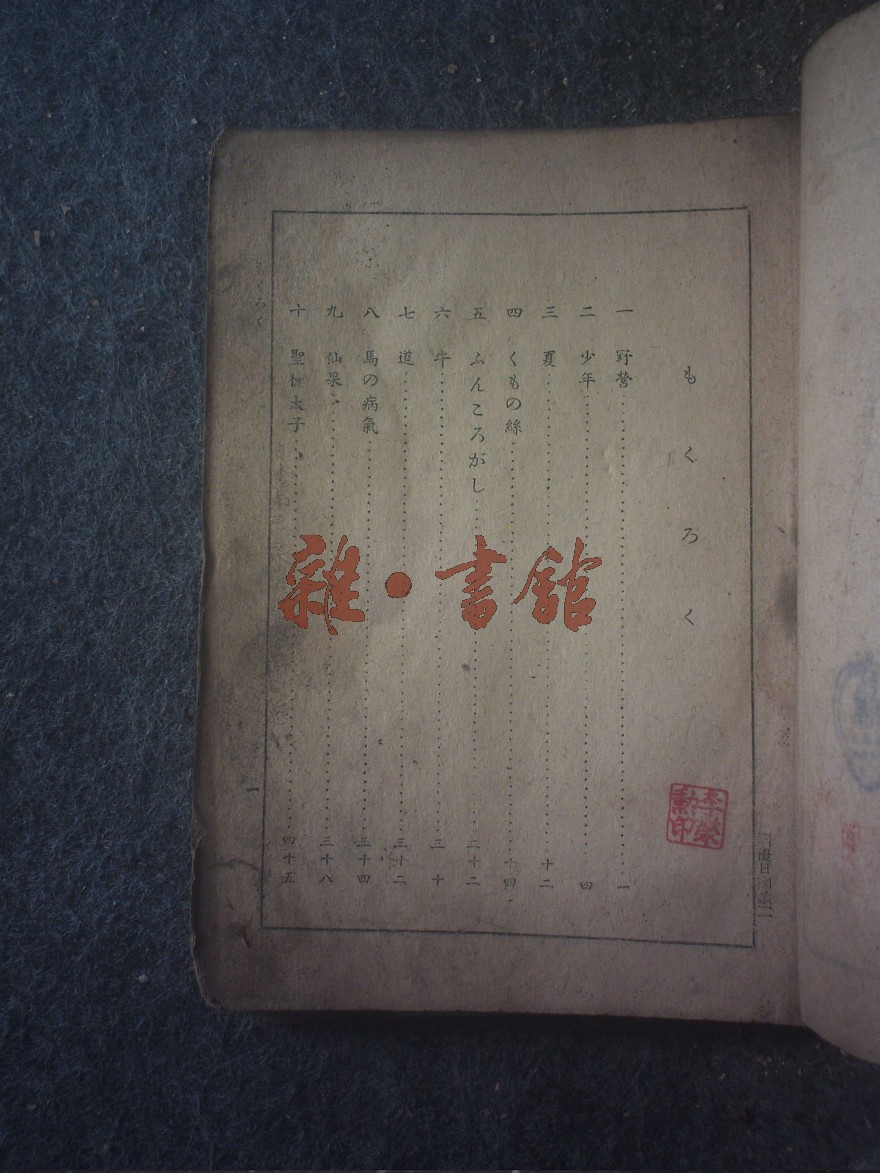 もくろく
一 野營 一
二 少年 四
三 夏 十二
四 くもの絲 十四
五 ふんころがし 二十二
六 牛 三十
七 道 三十二
八 馬の病氣 三十四
九 仙果 三十八
十 聖德太子 四十五
もくろく 一
雜·書舘
李榮勳印